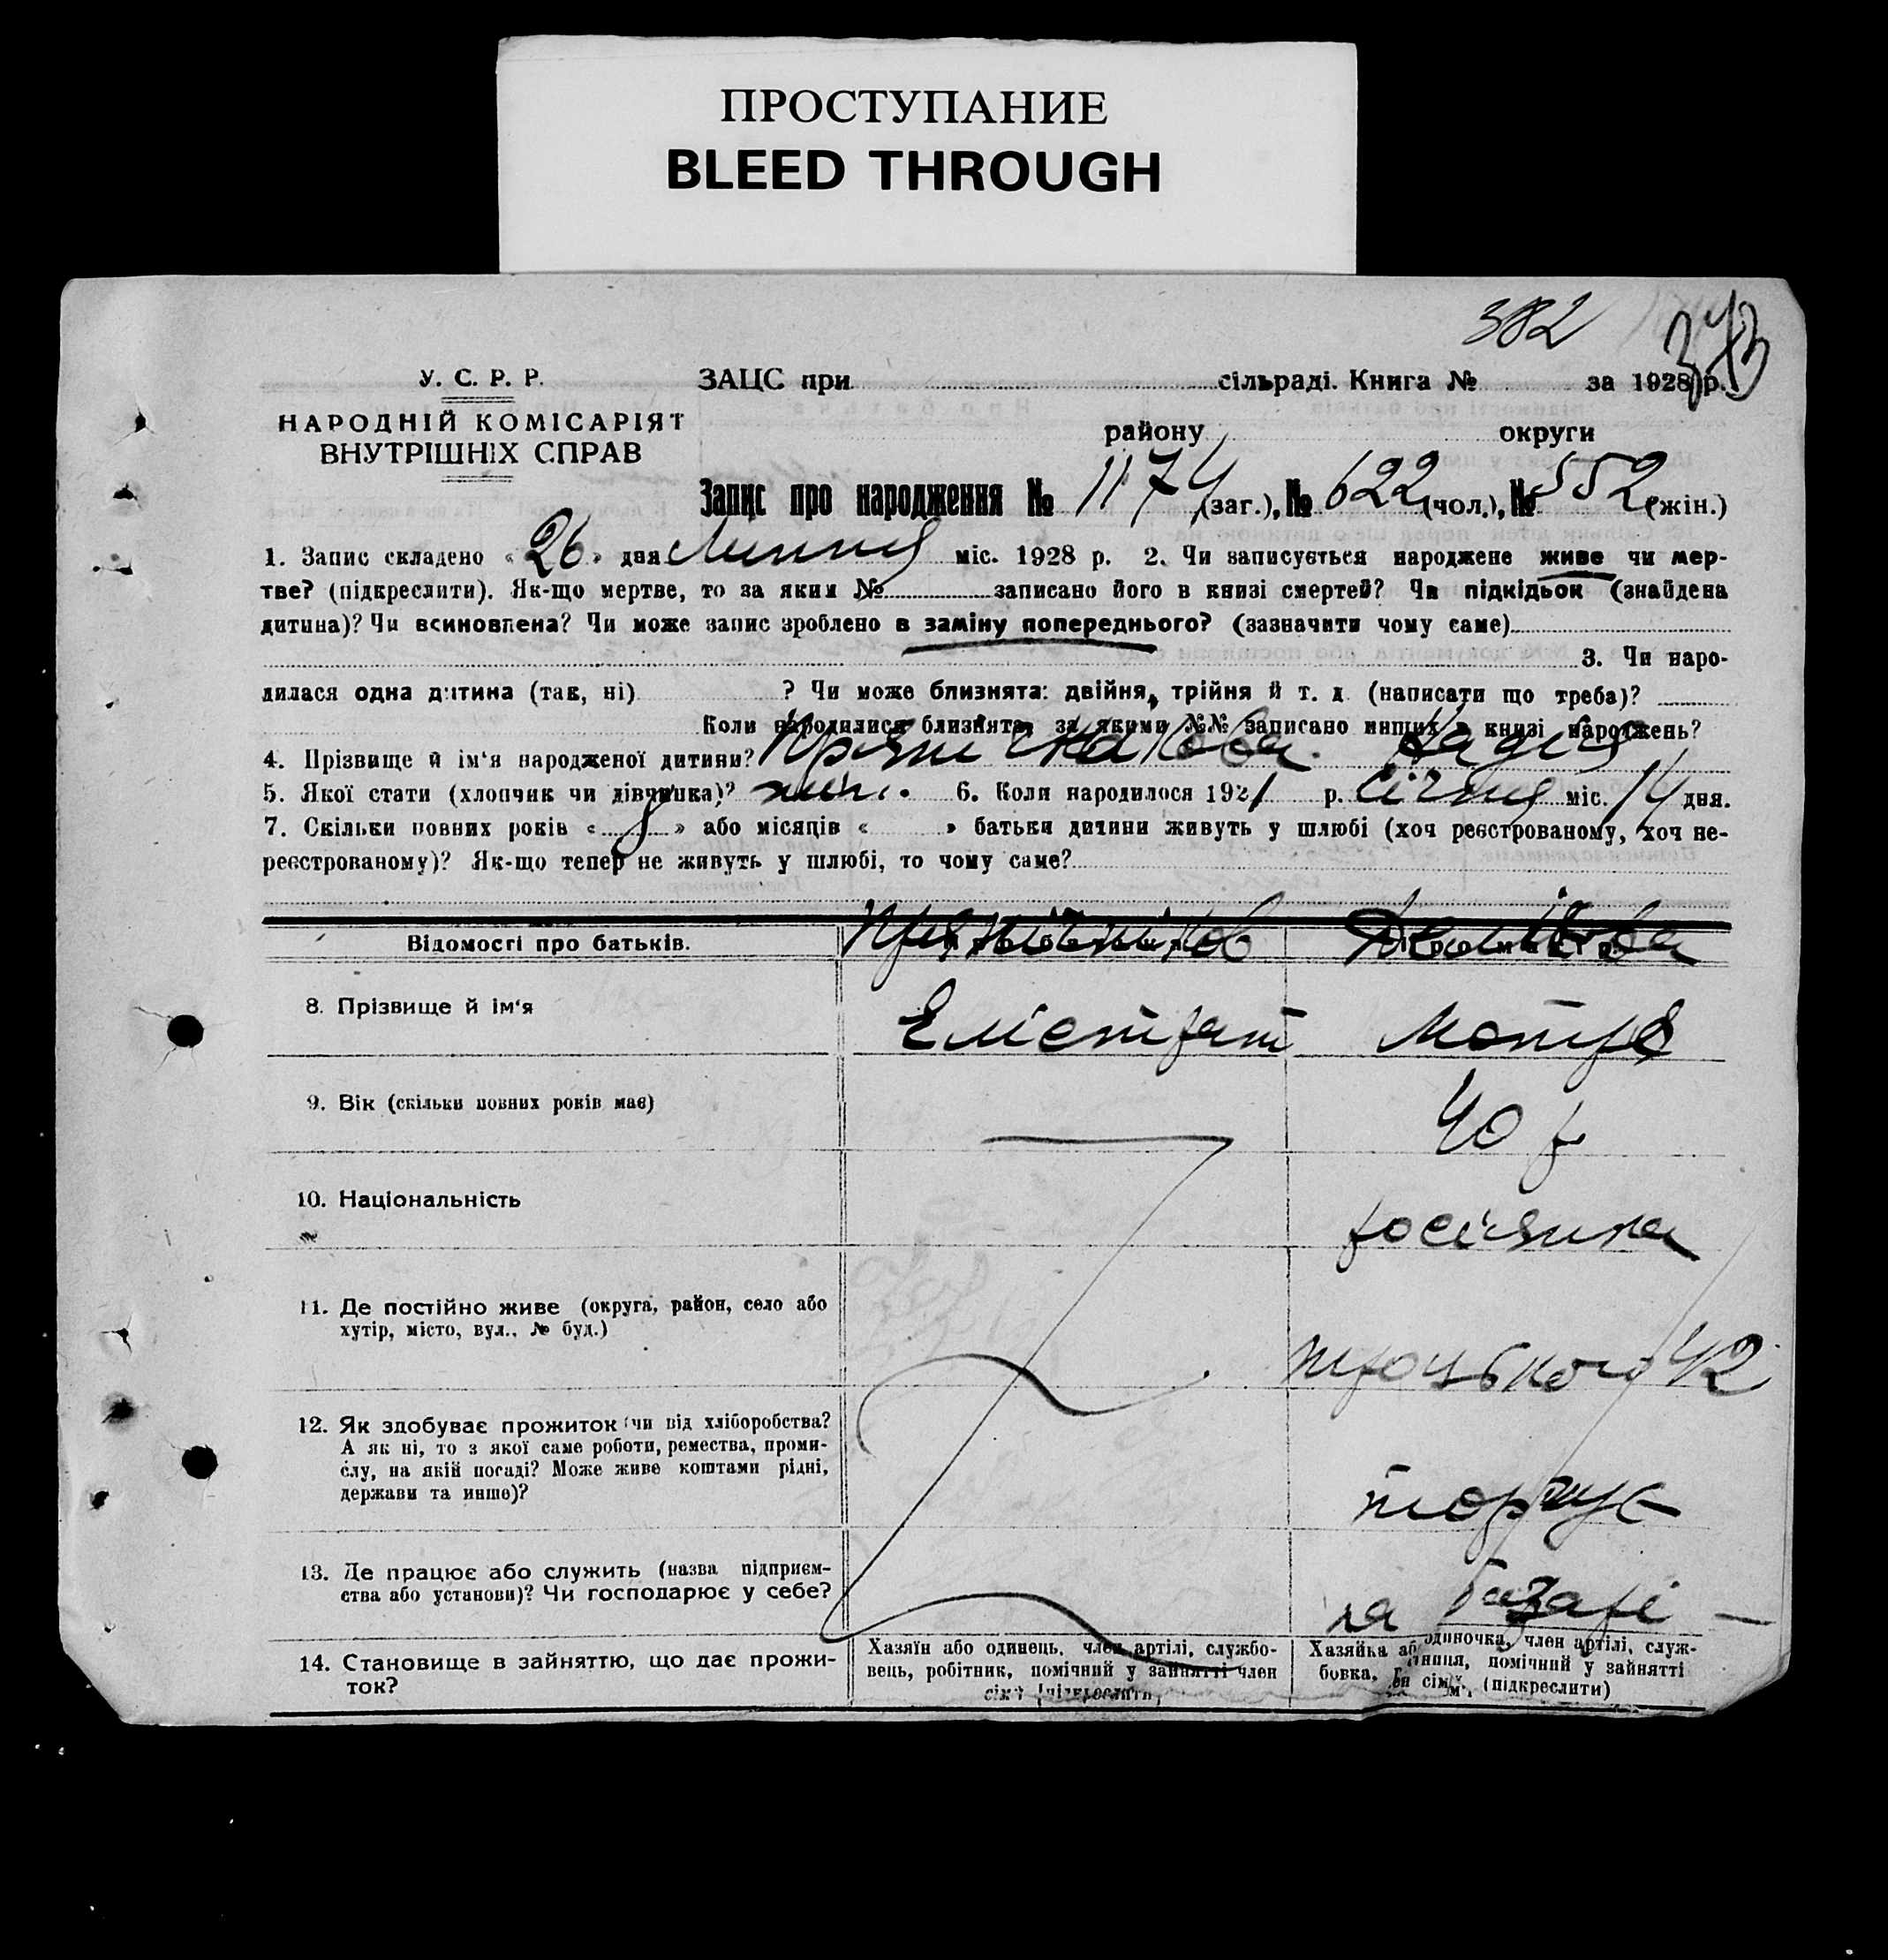 ПРОСТУПАНИЕ
BLEED THROUGH
382
373
У. С. Р. Р.
НАРОДНІЙ КОМІСАРІЯТ
ВНУТРІШНІХ СПРАВ
ЗАЦС при сільраді. Книга № за 1928 р.
району округи
Запис про народження № 1174 (заг.), № 622 (чол.), № 552 (жін.)
1. Запис складено «26» дня Липня міс. 1928 р. 2. Чи записується народжене живе чи мер-
тве? (підкреслити). Як-що мертве, то за яким № записано його в книзі смертей? Чи підкідьок (знайдена
дитина)? Чи всиновлена? Чи може запис зроблено в заміну попереднього? (зазначити чому саме)
3. Чи наро-
дилася одна дитина (так, ні) ? Чи може близнята: двійня, трійня й т. д. (написати що треба)?
Коли народилися близнята, за якими №№ записано инших в книзі народжень?
4. Прізвище й ім'я народженої дитини? Надія
5. Якої стати (хлопчик чи дівчинка)? жін. 6. Коли народилося 1921 р. Січня міс. 14 дня.
7. Скільки повних років «8» або місяців « » батьки дитини живуть у шлюбі (хоч реєстрованому, хоч не-
реєстрованому)? Як-що тепер не живуть у шлюбі, то чому саме?
Відомості про батьків.
8. Прізвище й ім'я Єлістрат Мотря
9. Вік (скільки повних років має) 40 р
10. Національність росіянка
11. Де постійно живе (округа, район, село або
хутір, місто, вул., № буд.)
Троцького 42
12. Як здобуває прожиток (чи від хліборобства?
А як ні, то з якої саме роботи, ремества, проми-
слу, на якій посаді? Може живе коштами рідні,
держави та инше)?
торгує
13. Де працює або служить (назва підприєм-
ства або установи)? Чи господарює у себе?
на базарі
14. Становище в зайняттю, що дає прожи-
ток?
Хазяїн або одинець, член артілі, службо-
вець, робітник, помічний у зайнятті член
сім'ї (підкреслити)
Хазяйка або одиночка, член артілі, служ-
бовка, помічний у зайнятті
сім'ї, (підкреслити)